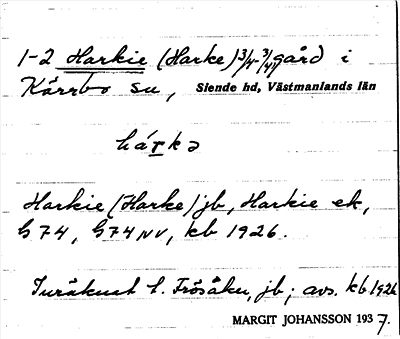 1-2 Harkie (Harke) 3/4-3/4 gård i
Kärrbo sn, Siende hd, Västmanlands län
hárkə
Harkie (Harke) jb, Harkie ek,
G 74, G74 NV, kb 1926.
t. Frösåker, jb; avs. kb 1926
MARGIT JOHANSSON 1937.